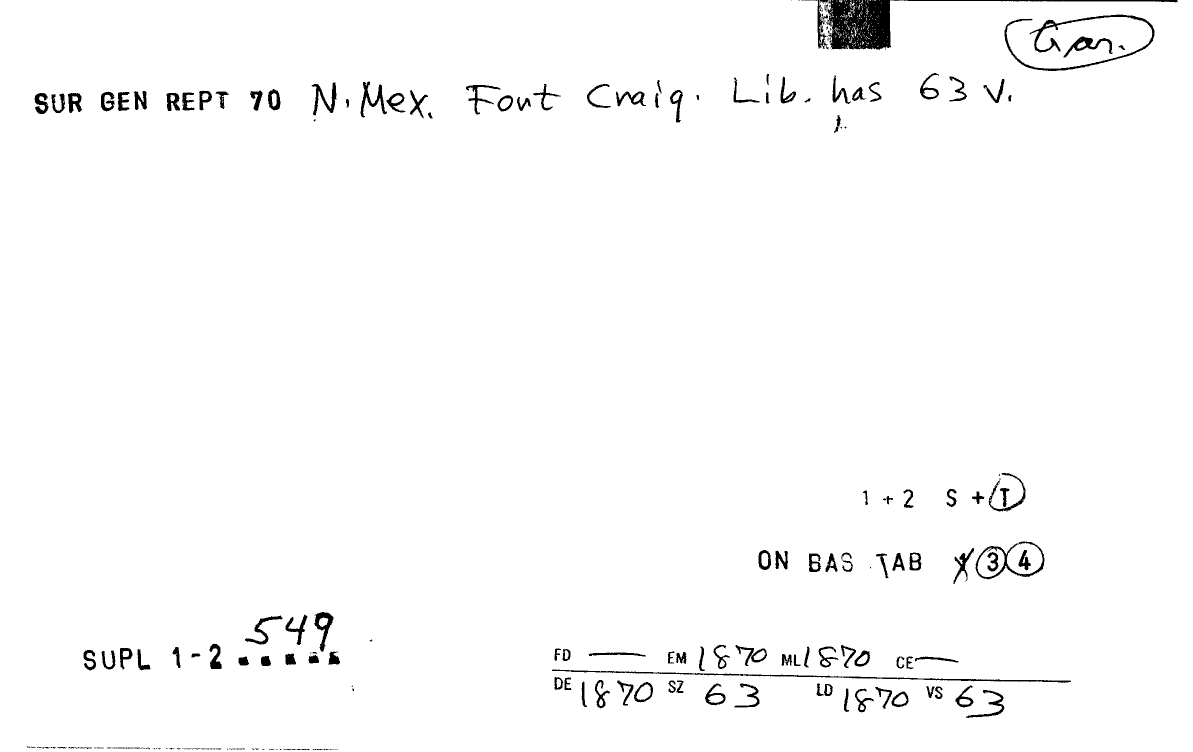 Gar.
SUR GEN REPT 70 N. Mex. Font Craig. Lib. has 63 v.
1 + 2 S + T
ON BAS TAB X 3 4
549
SUPL 1-2 .....
FD — EM 1870 ML 1870 CE —
DE 1870 SZ 63 LD 1870 VS 63